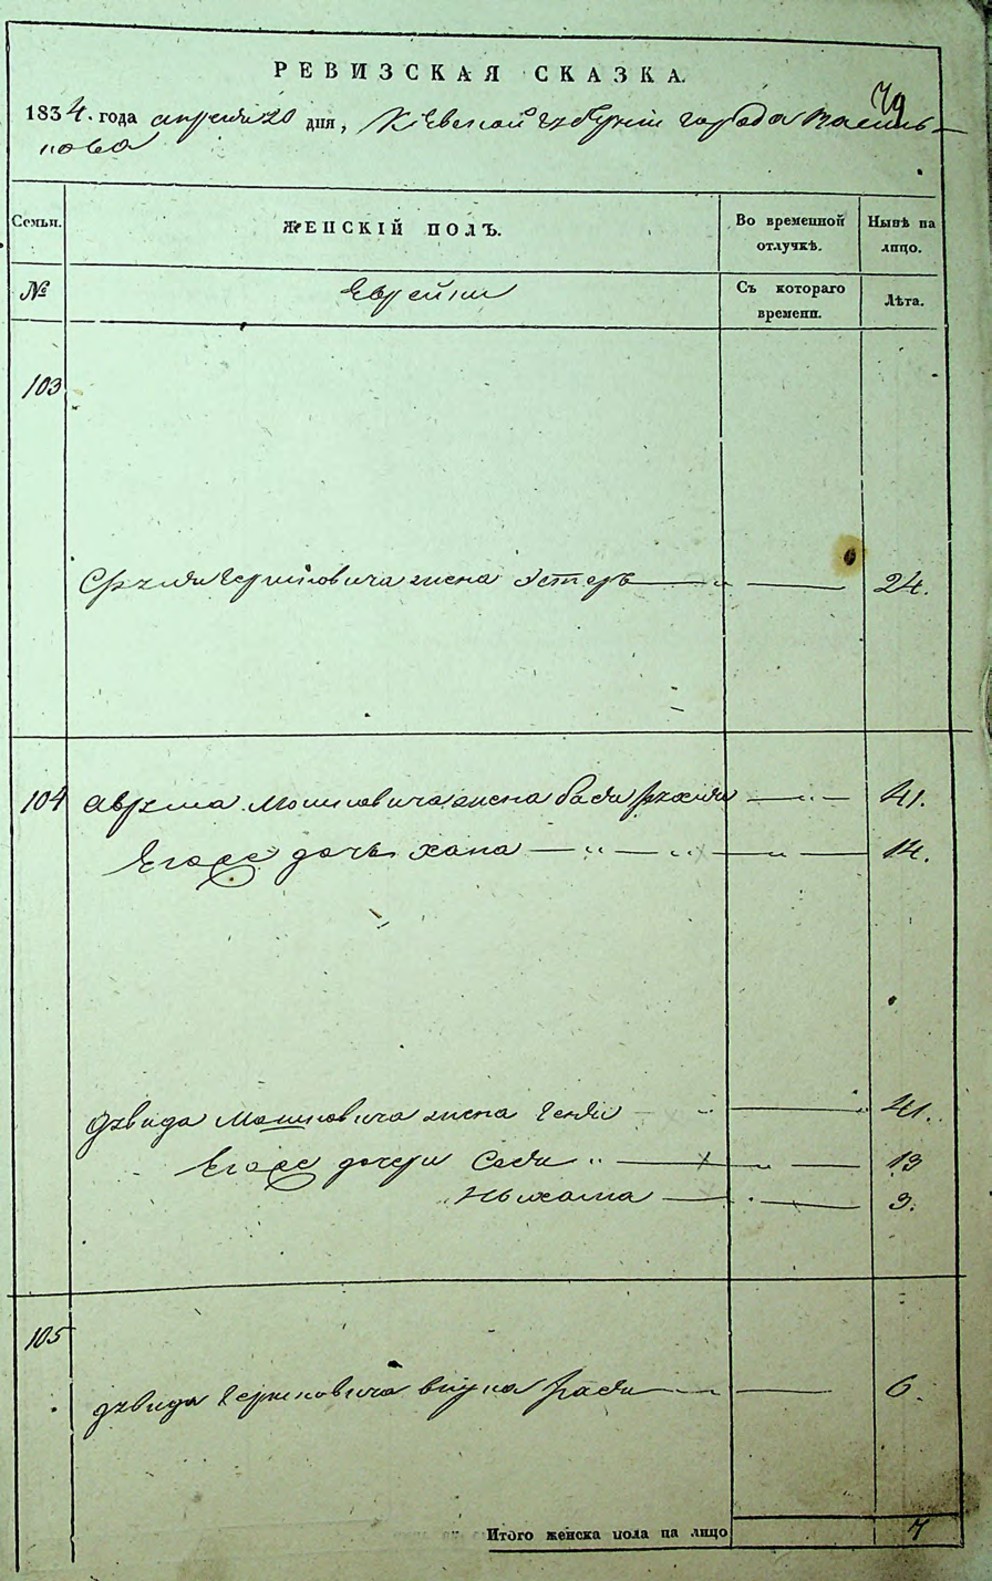 РЕВИЗСКАЯ СКАЗКА.
79
1834. года апреля 20 дня, Кіевской губерніи города Василь-
кова
Семьи. ЖЕНСКІЙ ПОЛЪ. Во временной отлучкѣ. Нынѣ на лицо.
№ Еврейки Съ котораго времени. Лѣта.
103
Сруля Гершковича жена Эстеръ 24.
104 Аврума Мошковича жена Бася Рухля 41.
Его же дочь Хана 14.
Дувида Мошковича жена Геня 41.
Его же дочери Сося 13
Нызама 3.
105
Дувида Гершковича внука Бася 6.
Итого женска пола на лицо 7